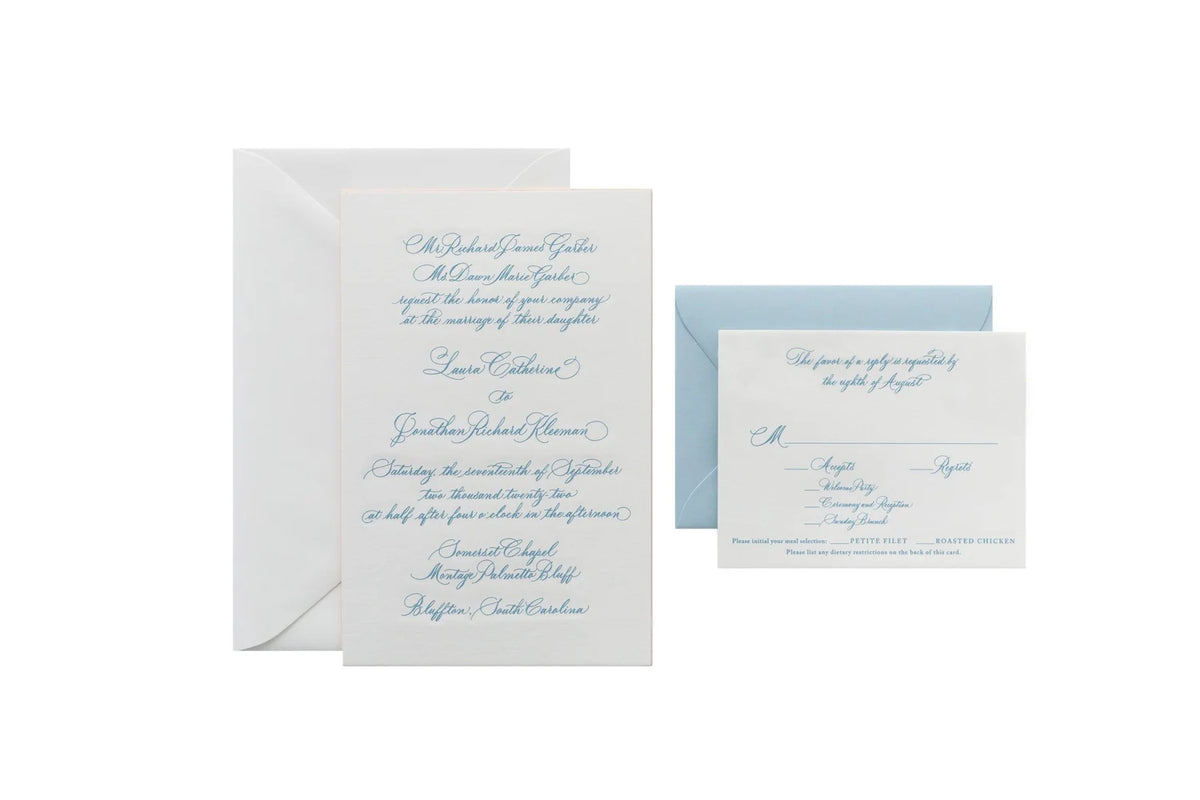 Mr. Richard James Garber
Ms. Dawn Marie Garber
request the honor of your company
at the marriage of their daughter
Laura Catherine
to
Jonathan Richard Kleeman
Saturday, the seventeenth of September
two thousand twenty-two
at half after four o'clock in the afternoon
Somerset Chapel
Montage Palmetto Bluff
Bluffton, South Carolina
The favor of a reply is requested by
the eighth of August
M
Accepts Regrets
Welcome Party
Ceremony and Reception
Sunday Brunch
Please initial your meal selection: PETITE FILET ROASTED CHICKEN
Please list any dietary restrictions on the back of this card.